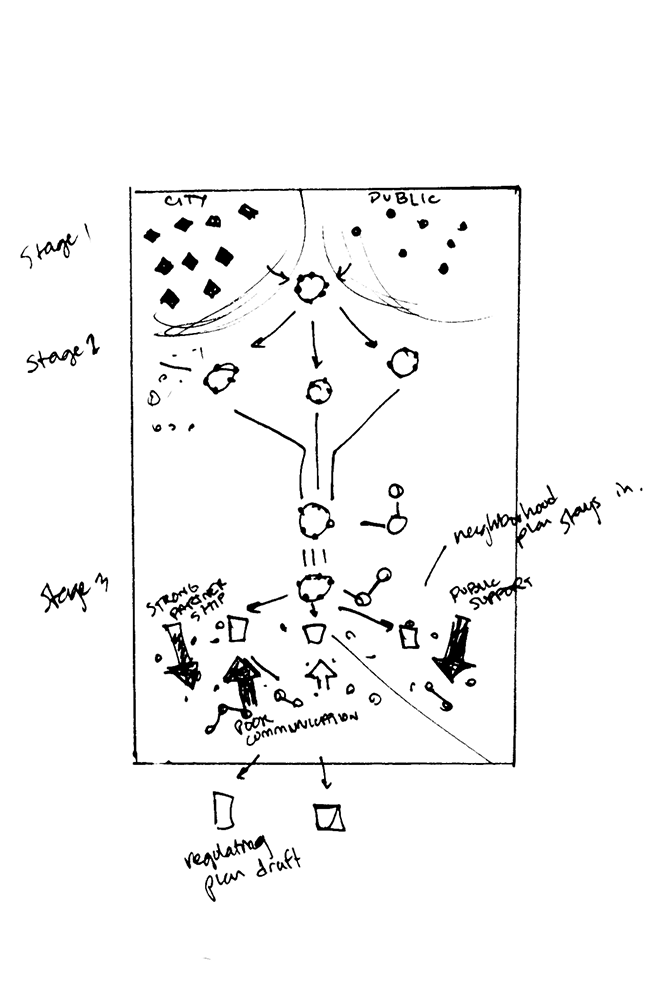 CITY
PUBLIC
Stage 1
Stage 2
neighborhood
plan stays in.
Stage 3
STRONG
PARTNER
SHIP
PUBLIC
SUPPORT
POOR
COMMUNICATION
regulating
plan draft